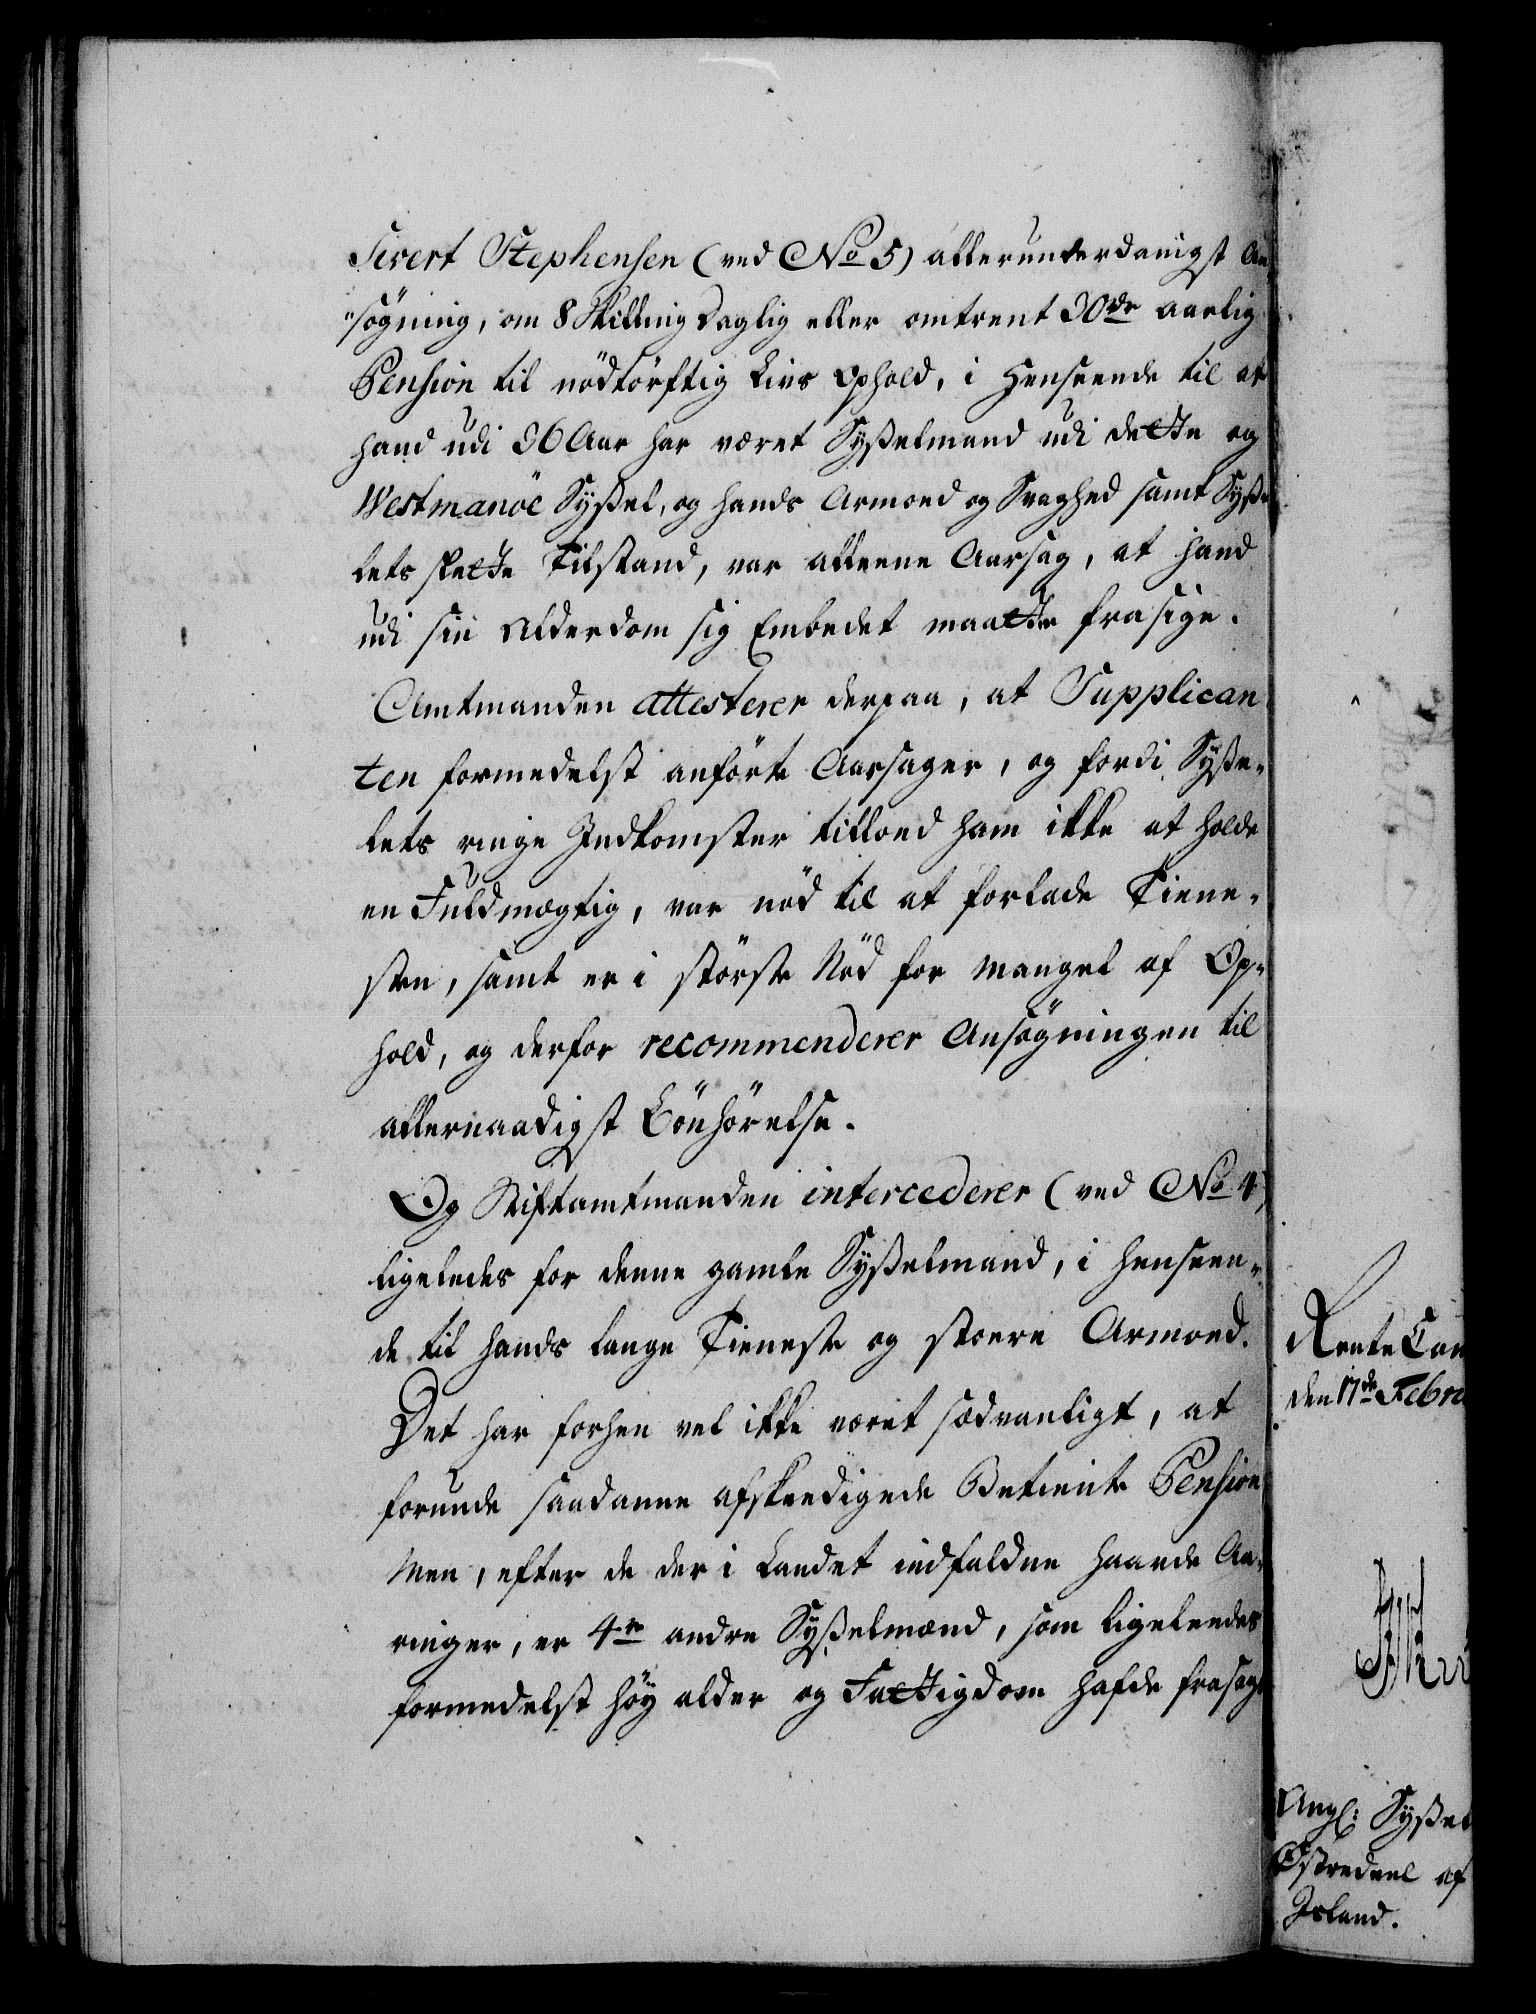 Sivert Stephensen (ved No 5) allerunderdanigst An
"søgning, om 8 Skilling Daglig eller omtrent 30 rdr aarlig
Pension til nödtörftig Livs Ophold, i Henseende til at
hand udi 36 Aar har været Sysselmand udi dette og
Westmanöe Syssel, og hands Armoed og Svaghed samt Sysse
lets slette Tilstand, var alleene Aarsag, at hand
udi sin Alderdom sig Embedet maatte frasige.
Amtmanden attesterer derpaa, at Supplican
ten formedelst anförte Aarsager, og fordi Sysse-
lets ringe Indkomster tillod ham ikke at holde
en Fuldmægtig, var nöd til at forlade Tiene-
sten, samt er i störste Nöd for Mangel af Op-
hold, og derfor recommenderer Ansögningen til
allernaadigst Bönhörelse.
Og Stiftamtmanden intercederer (ved No 4)
ligeledes for denne gamle Sysselmand, i Henseen-
de til hands lange Tieneste og stoere Armoed.
Det har forhen vel ikke været sædvanligt, at
forunde saadanne afskeedigede Betiente Pension
Men, efter de der i Landet indfaldne haarde Aa-
ringer, er 4re andre Sysselmænd, som ligeleedes
formedelst höy alder og Fattigdom hafde frasagt
Rente Cam
den 17de Febru
Ang: Syssel
Östredeel af
Island.